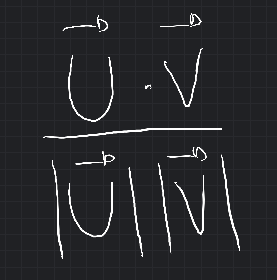 U⃗ · V⃗
|U⃗| |V⃗|